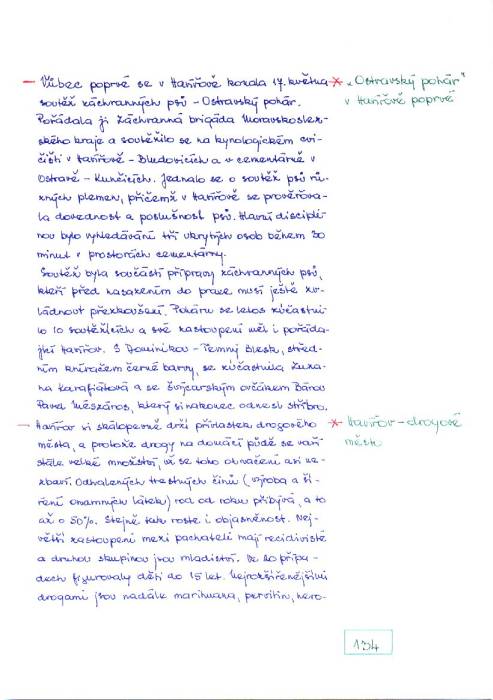 — Vůbec poprvé se v Havířově konala 17. května
soutěž záchranných psů - Ostravský pohár.
Pořádala ji Záchranná brigáda Moravskoslez-
ského kraje a soutěžilo se na kynologickém cvi-
čišti v Havířově - Bludovicích a v cementárně v
Ostravě - Kunčicích. Jednalo se o soutěž psů rů-
zných plemen, přičemž v Havířově se prověřova-
la dovednost a poslušnost psů. Hlavní disciplí-
nou bylo vyhledávání tří ukrytých osob během 30
minut v prostorách cementárny.
Soutěž byla součástí přípravy záchranných psů,
kteří před nasazením do práce musí ještě zv-
ládnout přezkoušení. Poháru se letos zúčastni-
lo 10 soutěžících a své zastoupení měl i pořáda-
jící Havířov. S Dominikou - Temný Blesk, střed-
ním kníračem černé barvy, se zúčastnila Zuza-
na Karafiátová a se švýcarským ovčákem Bárou
Pavel Mészáros, který si nakonec odnesl stříbro.
— Havířov si skálopevně drží přívlastek drogového
města, a protože drogy na domácí půdě se vaří
stále velké množství, už se toho označení asi ne-
zbaví. Odhalených trestných činů (výroba a ší-
ření omamných látek) rok od roku přibývá, a to
až o 50%. Stejně tak roste i objasněnost. Nej-
větší zastoupení mezi pachateli mají recidivisté
a druhou skupinou jsou mladiství. Ve 20 přípa-
dech figurovaly děti do 15 let. Nejrozšířenějšími
drogami jsou nadále marihuana, pervitin, hero-
* „Ostravský pohár"
v Havířově poprvé
* Havířov - drogové
město
134